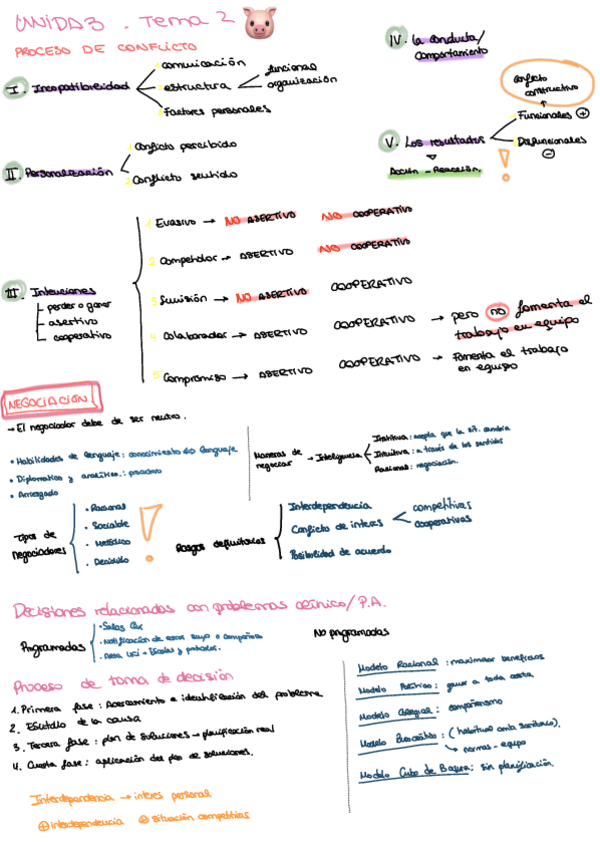 UNIDAD 3 - Tema 2
PROCESO DE CONFLICTO
I. Incopatibilidad
comunicación
estructura
funcional
organización
Factores personales
II. Personalización
1 Conflicto percibido
2 Conflicto sentido
III. Intenciones
perder o ganar
asertivo
cooperativo
1 Evasivo → NO ASERTIVO NO COOPERATIVO
2 Competidor → ASERTIVO NO COOPERATIVO
3 Sumisión → NO ASERTIVO COOPERATIVO
4 Colaborador → ASERTIVO COOPERATIVO → pero no fomenta el trabajo en equipo
5 Compromiso → ASERTIVO COOPERATIVO → Fomenta el trabajo en equipo
IV. La conducta/
comportamiento
V. Los resultados
Acción - Reacción.
conflicto
constructivo
Funsionales +
Disfuncionales -
!
NEGOCIACIÓN
→ El negociador debe de ser neutro.
• Habilidades de lenguaje: conocimiento del lenguaje
• Diplomatico y analítico:
• Arriesgado
Maneras de
negociar → Inteligencia
Intuitiva: a través de los sentidos
Racional: negociación.
Tipos de
negociadores
• Racional
• Sociable
• Metódico
• Decidido
!
Rasgos definitorios
Interdependencia
Conflicto de interes
competitivas
cooperativas
Posibilidad de acuerdo
Decisiones relacionadas con problemas clínico/P.A.
Programadas
• Salas Qx
No programadas
Proceso de toma de decisión
1. Primera fase: Acercamiento e identificación del problema
2. Estudio de la causa
3. Tercera fase: plan de soluciones → planificación real
4. Cuarta fase: aplicación del plan de soluciones.
Modelo Racional: maximizar beneficios
Modelo Político: ganar a toda costa
Modelo Colegial: compañerismo
Modelo Burocrático: (habitual
normas - equipo
Modelo Cubo de Basura: sin planificación.
Interdependencia → interes personal
interdependencia situación competitivas